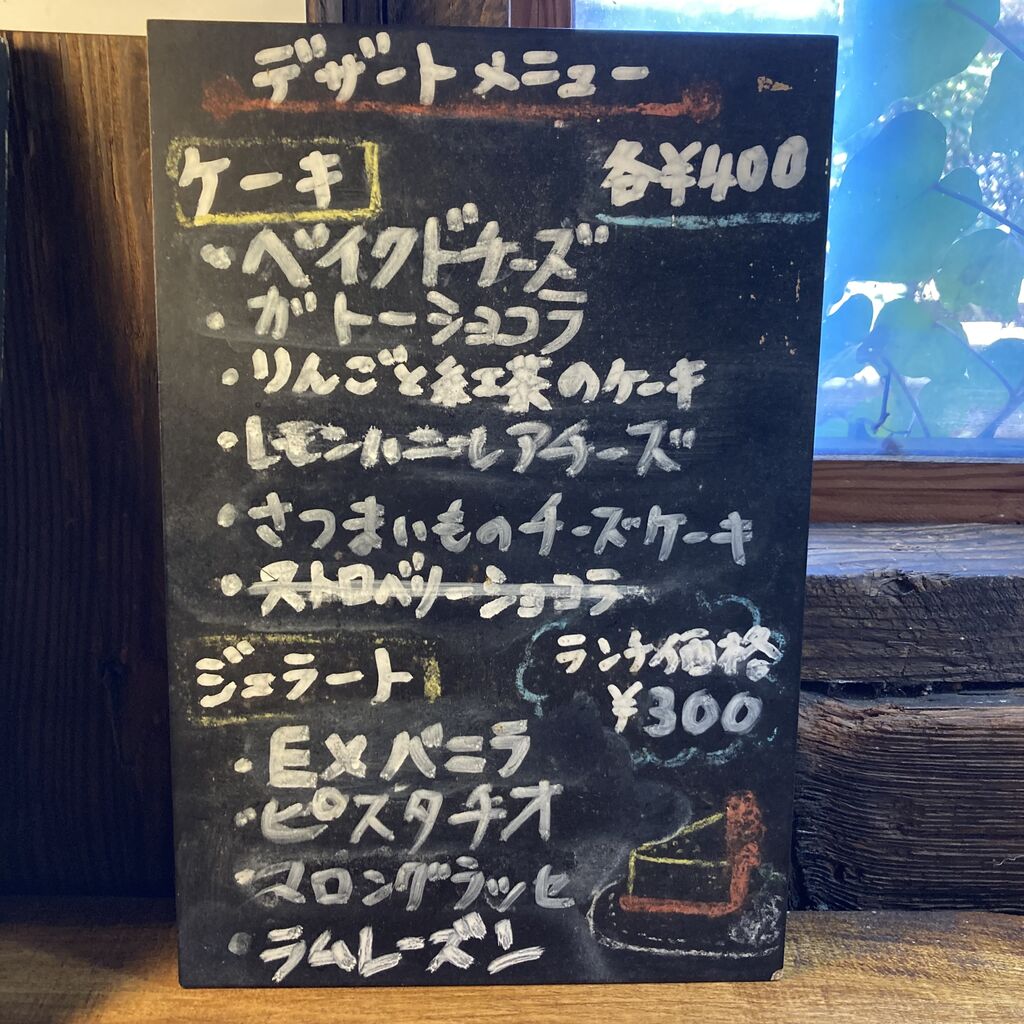 デザートメニュー
ケーキ 各¥400
・ベイクドチーズ
・ガトーショコラ
・りんごと紅茶のケーキ
・レモンハニーレアチーズ
・さつまいものチーズケーキ
・ストロベリーショコラ
ジェラート
ランチ価格
¥300
・EXバニラ
・ピスタチオ
・マロングラッセ
・ラムレーズン